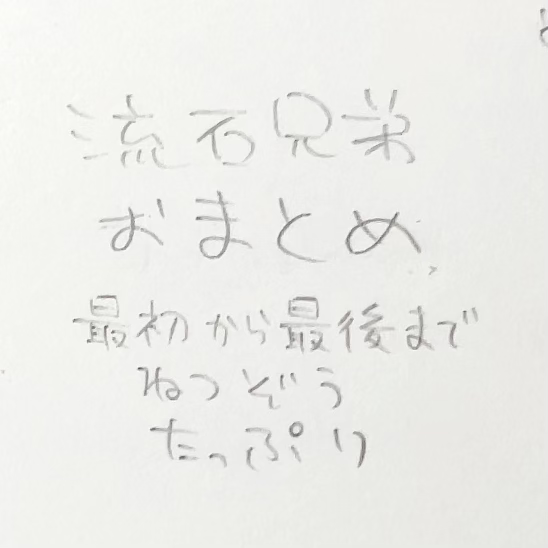 流石兄弟
おまとめ
最初から最後まで
ねつぞう
たっぷり